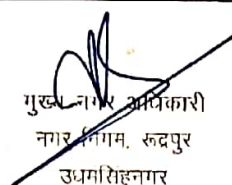 मुख्य नगर अधिकारी
नगर निगम, रूद्रपुर
उधमसिंहनगर